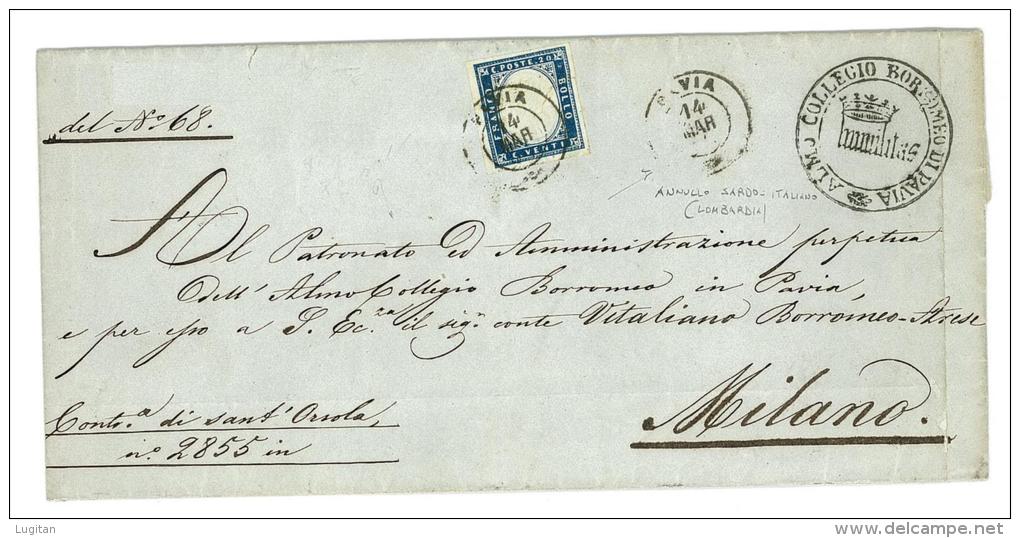 del N.º 68.
C. POSTE. 20
FRANCO
BOLLO
C. VENTI
PAVIA
14
MAR
PAVIA
14
MAR
ALMO COLLEGIO BORROMEO DI PAVIA
humilitas
ANNULLO SARDO-ITALIANO
(LOMBARDIA)
Al Patronato ed Amministrazione perpetua
dell' Almo Collegio Borromeo in Pavia,
e per esso a S. Ecc.za il sig.r conte Vitaliano Borromeo-Arese
Milano.
Cont.a di sant' Orsola,
n.º 2855 in
Lugitan
© delcampe.net